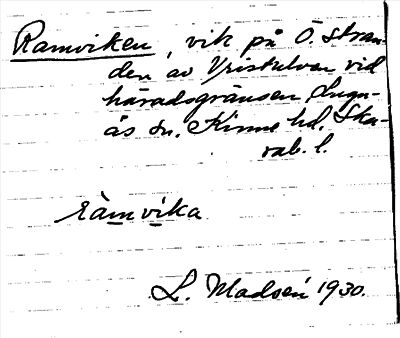 Ramviken, vik på Ö. stran-
den av Vristulvan vid
häradsgränsen, Lugn-
ås sn. Kinne hd. Ska-
rab. l.
ràmvika
L. Madsén 1930.